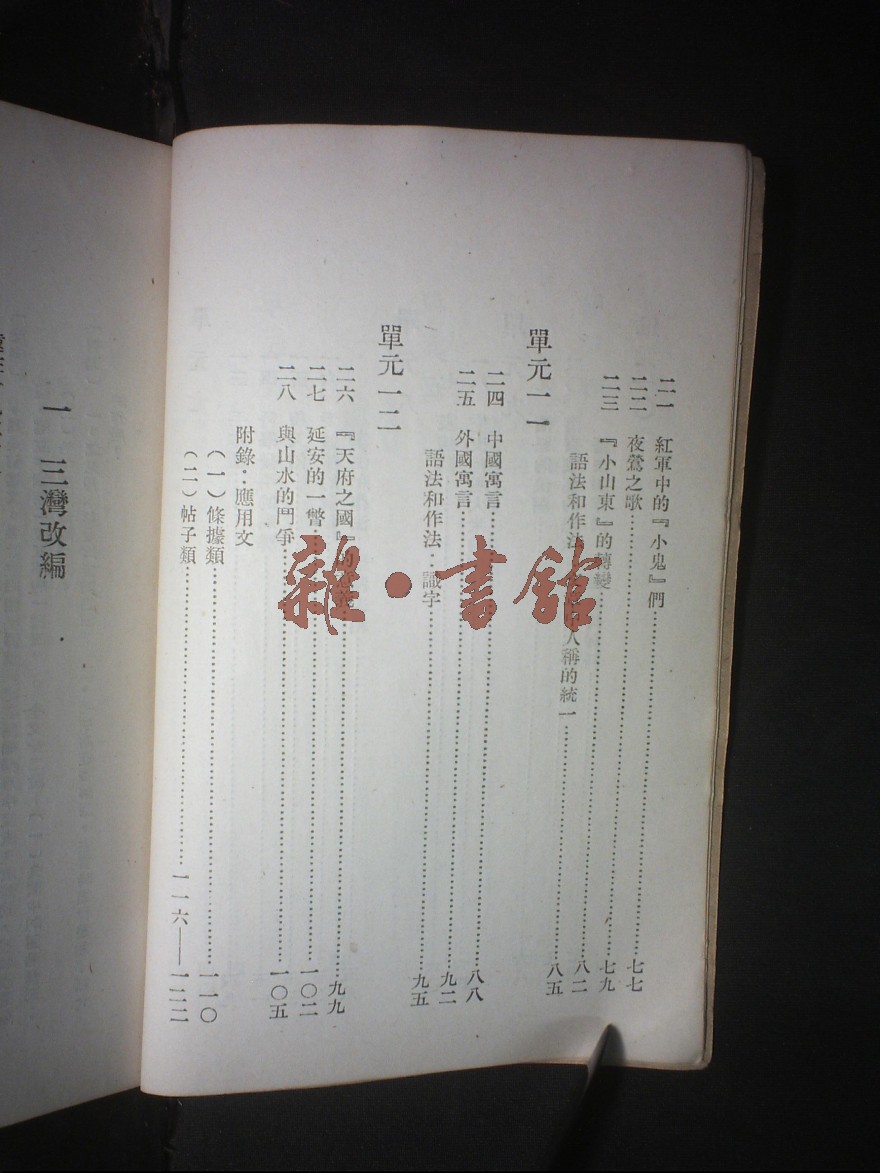 二一　紅軍中的『小鬼』們……七七
二二　夜鶯之歌……七九
二三　『小山東』的轉變……八二
語法和作法 人稱的統一……八五
單元一一
二四　中國寓言……八八
二五　外國寓言……九二
語法和作法：識字……九五
單元一二
二六　『天府之國』……九九
二七　延安的一瞥……一〇二
二八　與山水的鬥爭……一〇五
附錄：應用文
（一）條據類……一一〇
（二）帖子類……一一六——一二二
一　三灣改編
雜·書舘